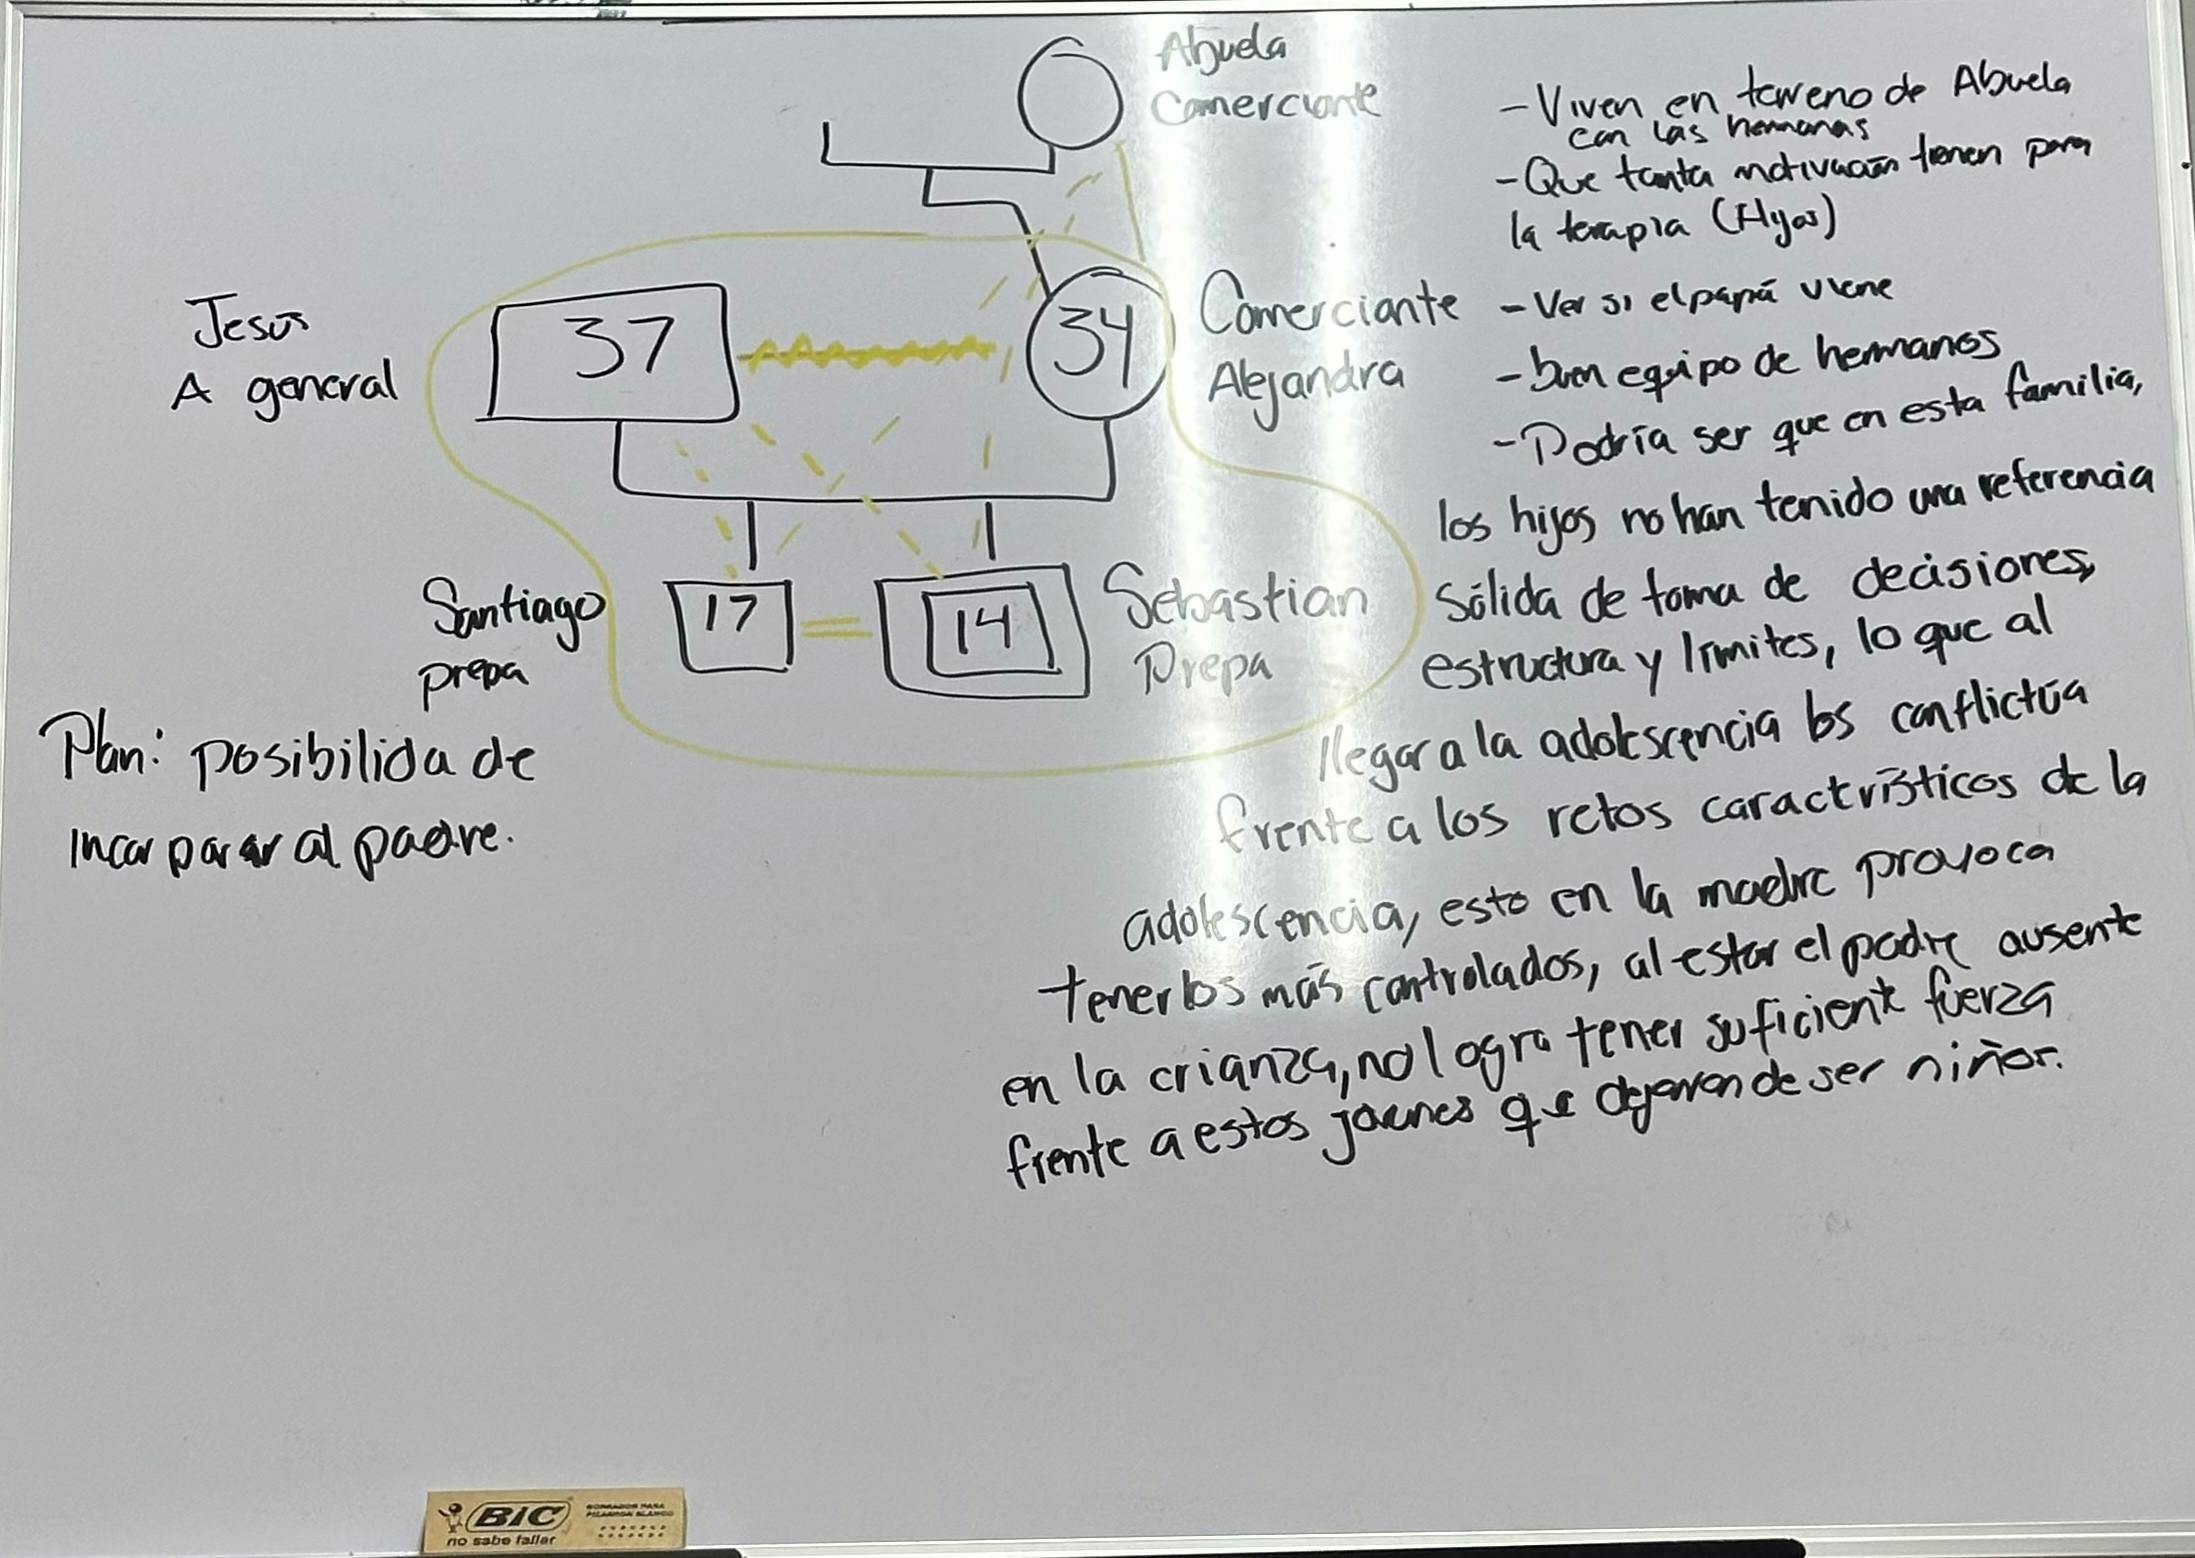 Abuela
Comerciante
Jesus
A general
37
34
Comerciante
Alejandra
Santiago
prepa
17
14
Sebastian
Prepa
Plan: posibilida de
incorporar al padre.
- Viven en terreno de Abuela
con las hermanas
- Que tanta motivación tienen para
la terapia (Hijos)
- Ver si el papá viene
- buen equipo de hermanos
- Podría ser que en esta familia,
los hijos no han tenido una referencia
sólida de toma de decisiones,
estructura y límites, lo que al
llegar a la adolescencia los conflictúa
frente a los retos caractrísticos de la
adolescencia, esto en la madre provoca
tenerlos más controlados, al estar el padre ausente
en la crianza, no logra tener suficiente fuerza
frente a estos jovenes que dejaron de ser niños.
BIC
no sabe fallar
BORRADOR PARA
PIZARRON BLANCO